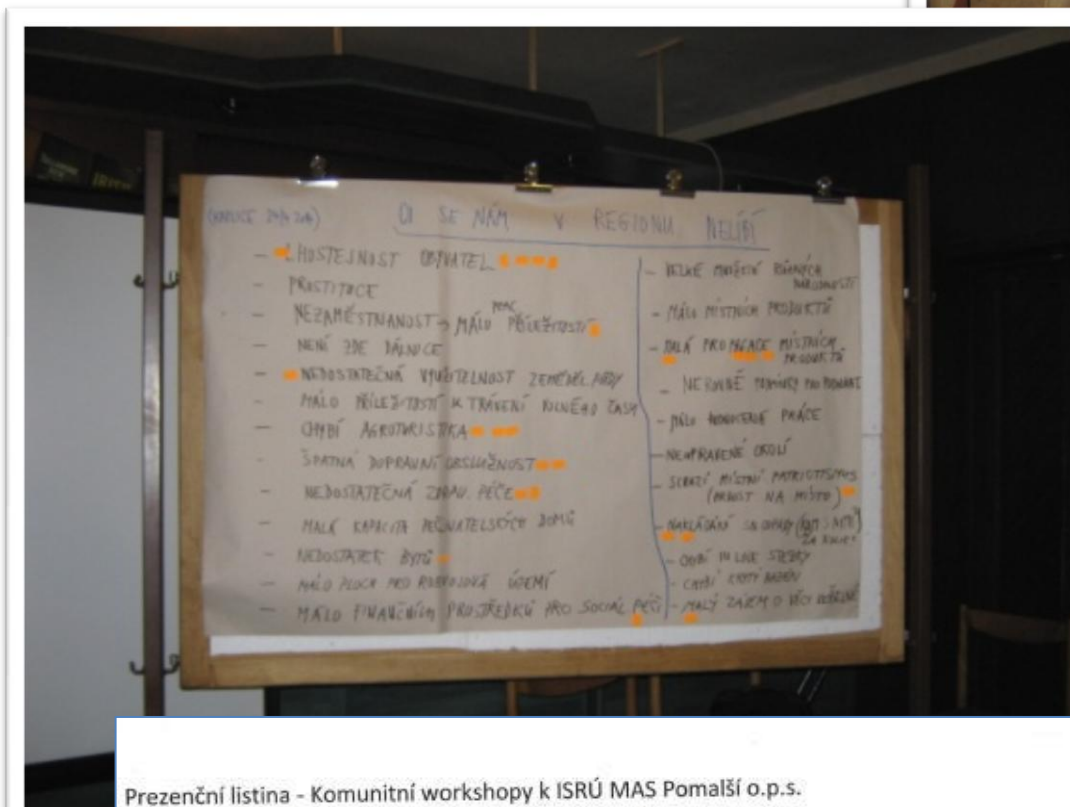 (KAPLICE
CO SE NÁM V REGIONU NELÍBÍ
- LHOSTEJNOST OBYVATEL
- PROSTITUCE
- NEZAMĚSTNANOST → MÁLO PRAC. PŘÍLEŽITOSTÍ
- NENÍ ZDE DÁLNICE
- NEDOSTATEČNÁ VYUŽITELNOST ZEMĚDĚL. PŮDY
- MÁLO PŘÍLEŽITOSTÍ K TRÁVENÍ VOLNÉHO ČASU
- CHYBÍ AGROTURISTIKA
- ŠPATNÁ DOPRAVNÍ OBSLUŽNOST
- NEDOSTATEČNÁ ZDRAV. PÉČE
- MALÁ KAPACITA PEČOVATELSKÝCH DOMŮ
- NEDOSTATEK BYTŮ
- MÁLO PLOCH PRO ROZVOJOVÁ ÚZEMÍ
- MÁLO FINANČNÍCH PROSTŘEDKŮ PRO SOCIÁL. PÉČI
- VELKÉ MNOŽSTVÍ RŮZNÝCH
NÁRODNOSTÍ
- MÁLO MÍSTNÍCH PRODUKTŮ
- MALÁ PROPAGACE MÍSTNÍCH
PRODUKTŮ
- NEROVNÉ PODMÍNKY PRO
- MÁLO PRÁCE
- NEUPRAVENÉ OKOLÍ
- SCHÁZÍ MÍSTNÍ PATRIOTISMUS
(HRDOST NA MÍSTO)
- NAKLÁDÁNÍ S ODPADY
- CHYBÍ IN LINE STEZKY
- CHYBÍ KRYTÝ BAZÉN
- MALÝ ZÁJEM O VĚCI VEŘEJNÉ
Prezenční listina - Komunitní workshopy k ISRÚ MAS Pomalší o.p.s.